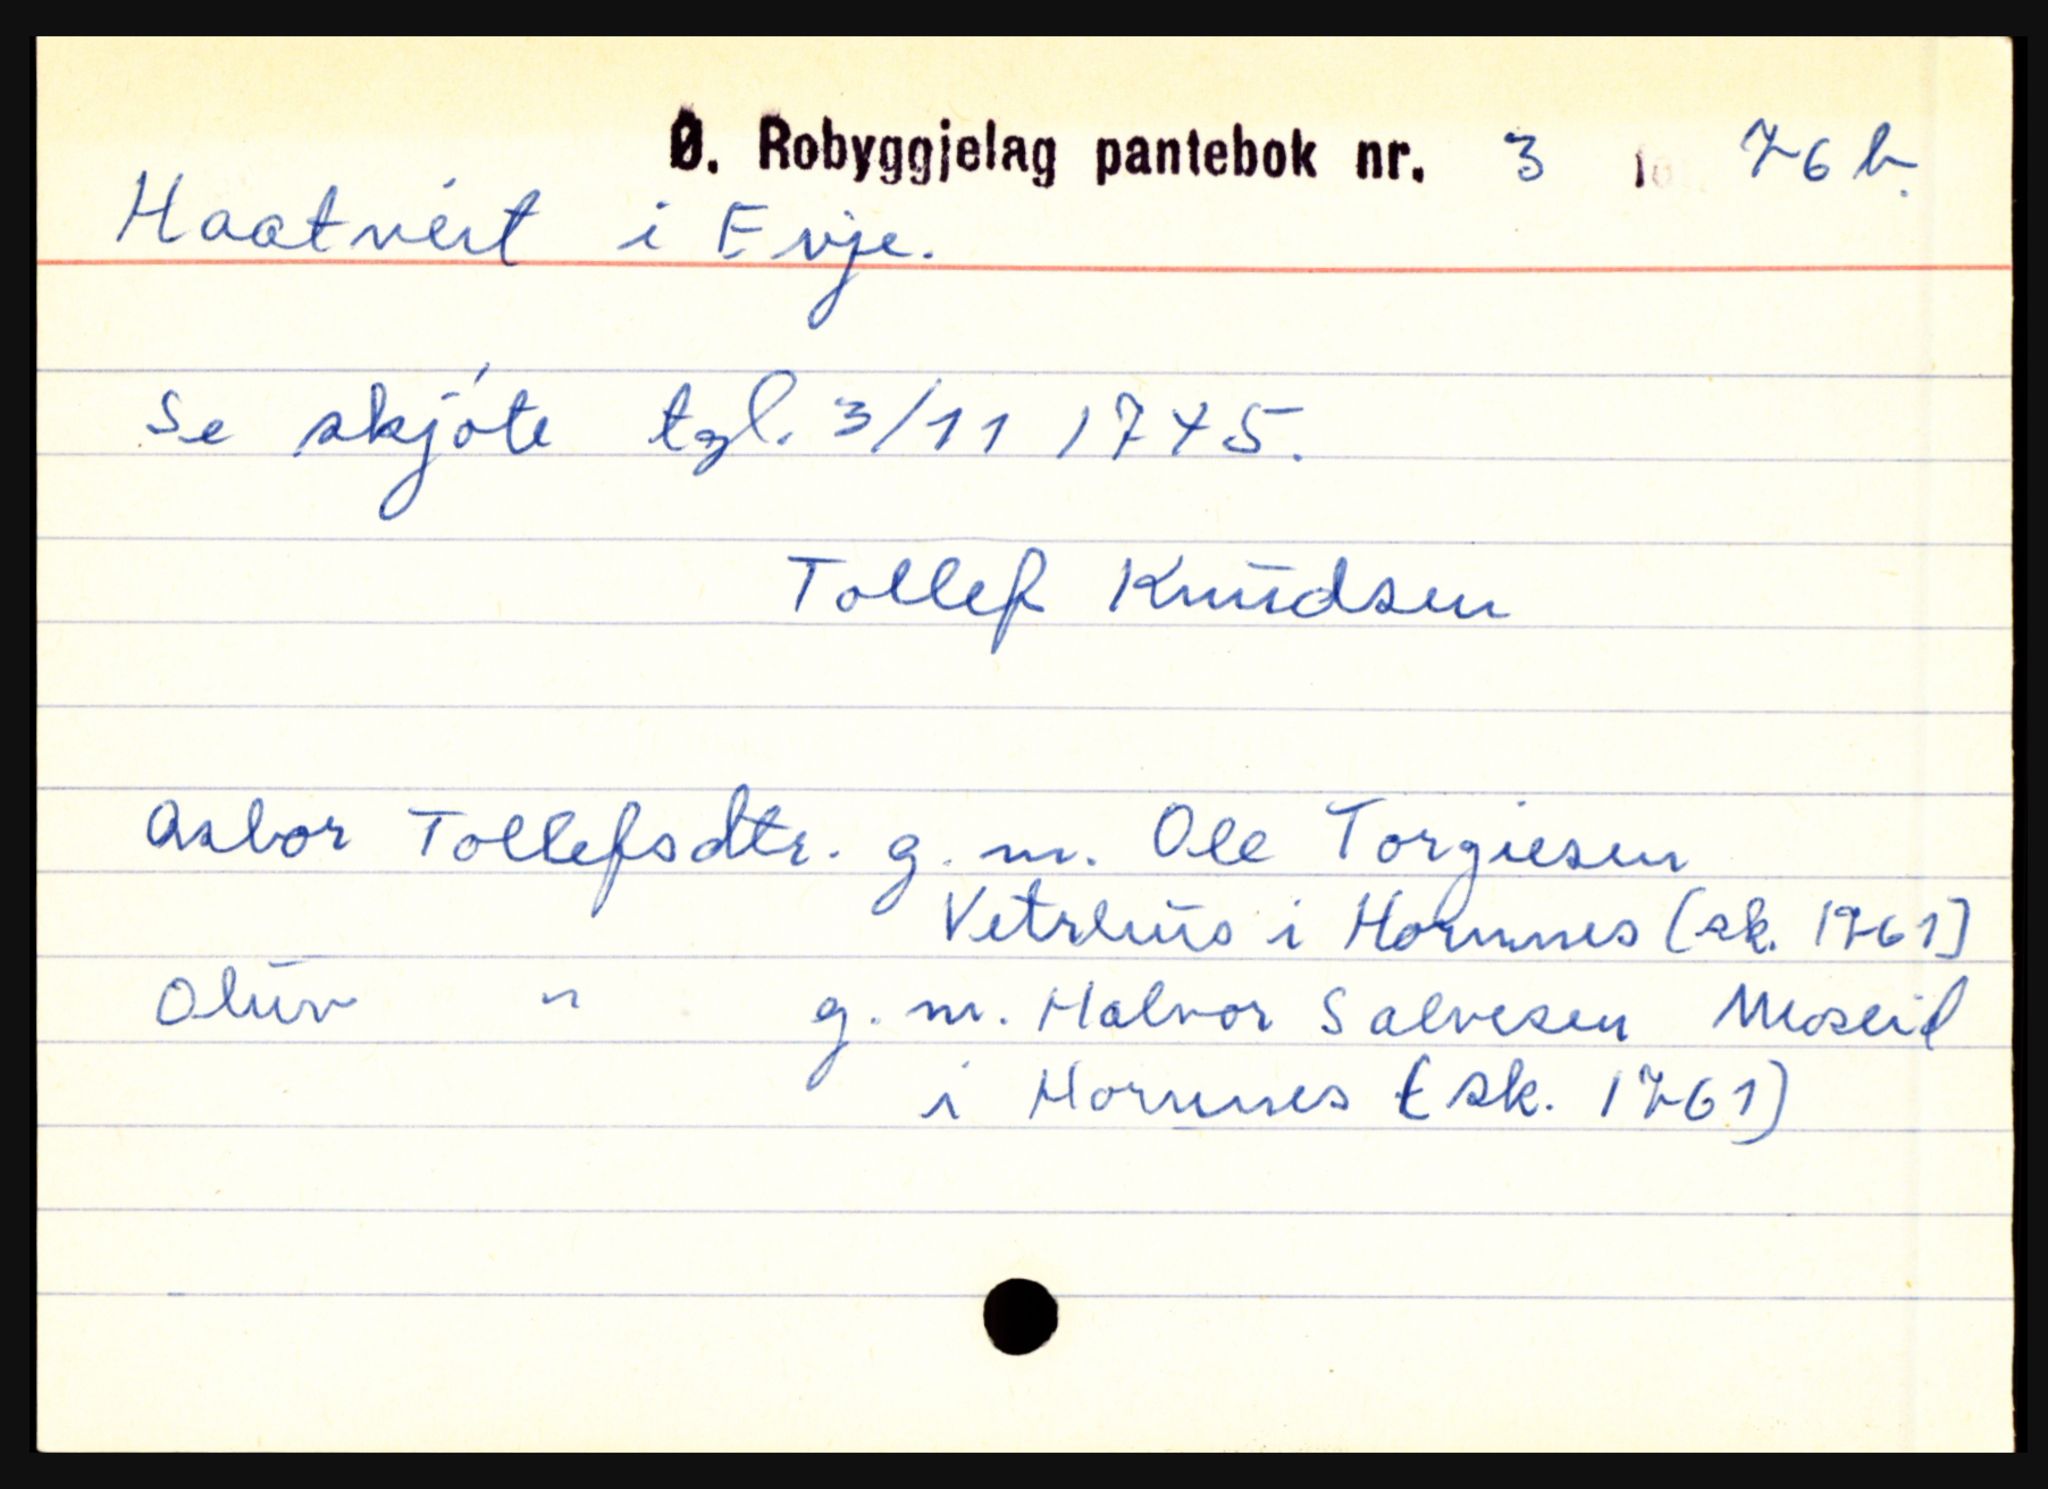 Ø. Robyggjelag pantebok nr. 3 fo 76 b.
Haatveit i Evje.
Se skjóte tgl. 3/11 1745.
Tollef Knudsen
Asbor Tollefsdtr. g. m. Ole Torgiesen
Vetrhus i Hornnes (sk. 1761)
Oluv " g. m. Halvor Salvesen Moseid
i Hornnes (sk. 1761)